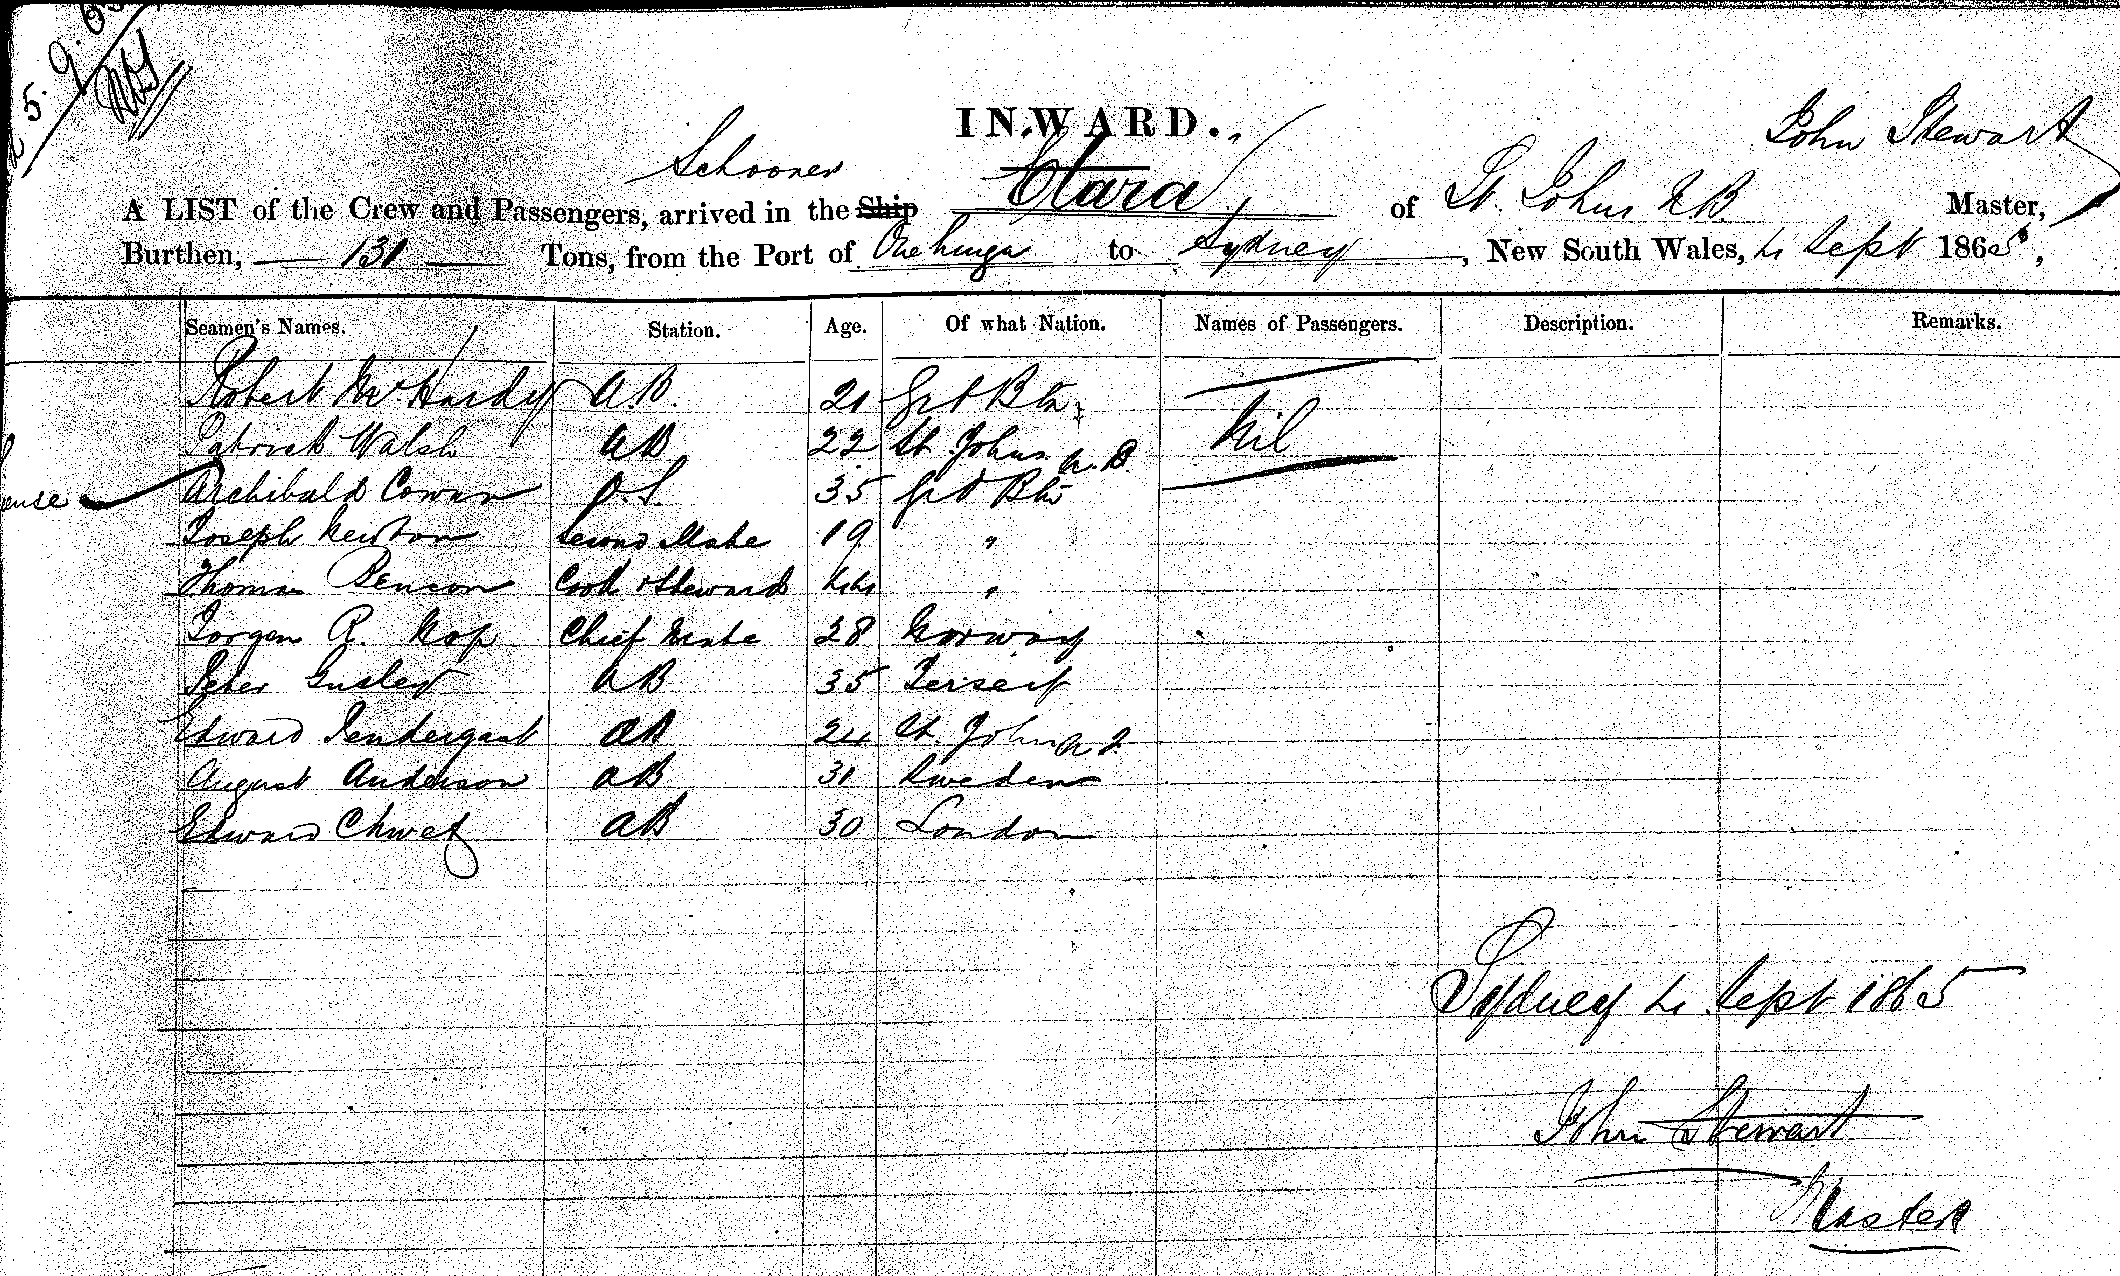 5. 9. 65
INWARD.
John Stewart
Schooner
A LIST of the Crew and Passengers, arrived in the Ship Clara of St. Johns N B Master,
Burthen, 131 Tons, from the Port of Onehunga to Sydney, New South Wales, 4 Sept 1865,
Seamen's Names. Station. Age. Of what Nation. Names of Passengers. Description. Remarks.
Robert McHardy A.B. 21 Grt Btn Nil
Patrick Walsh AB 22 St Johns N.B
Archibald Cowan O.S. 35 Grt Btn
Joseph Newton Second Mate 19 "
Thomas Bencon Cook & Steward 44 "
Jorgen R. Kop Chief Mate 28 Norway
Peter AB 35 Jersey
Edward Pendergast AB 24 St Johns
August Anderson AB 31 Sweden
Edward AB 30 London
Sydney 4 Sept 1865
John Stewart
Master